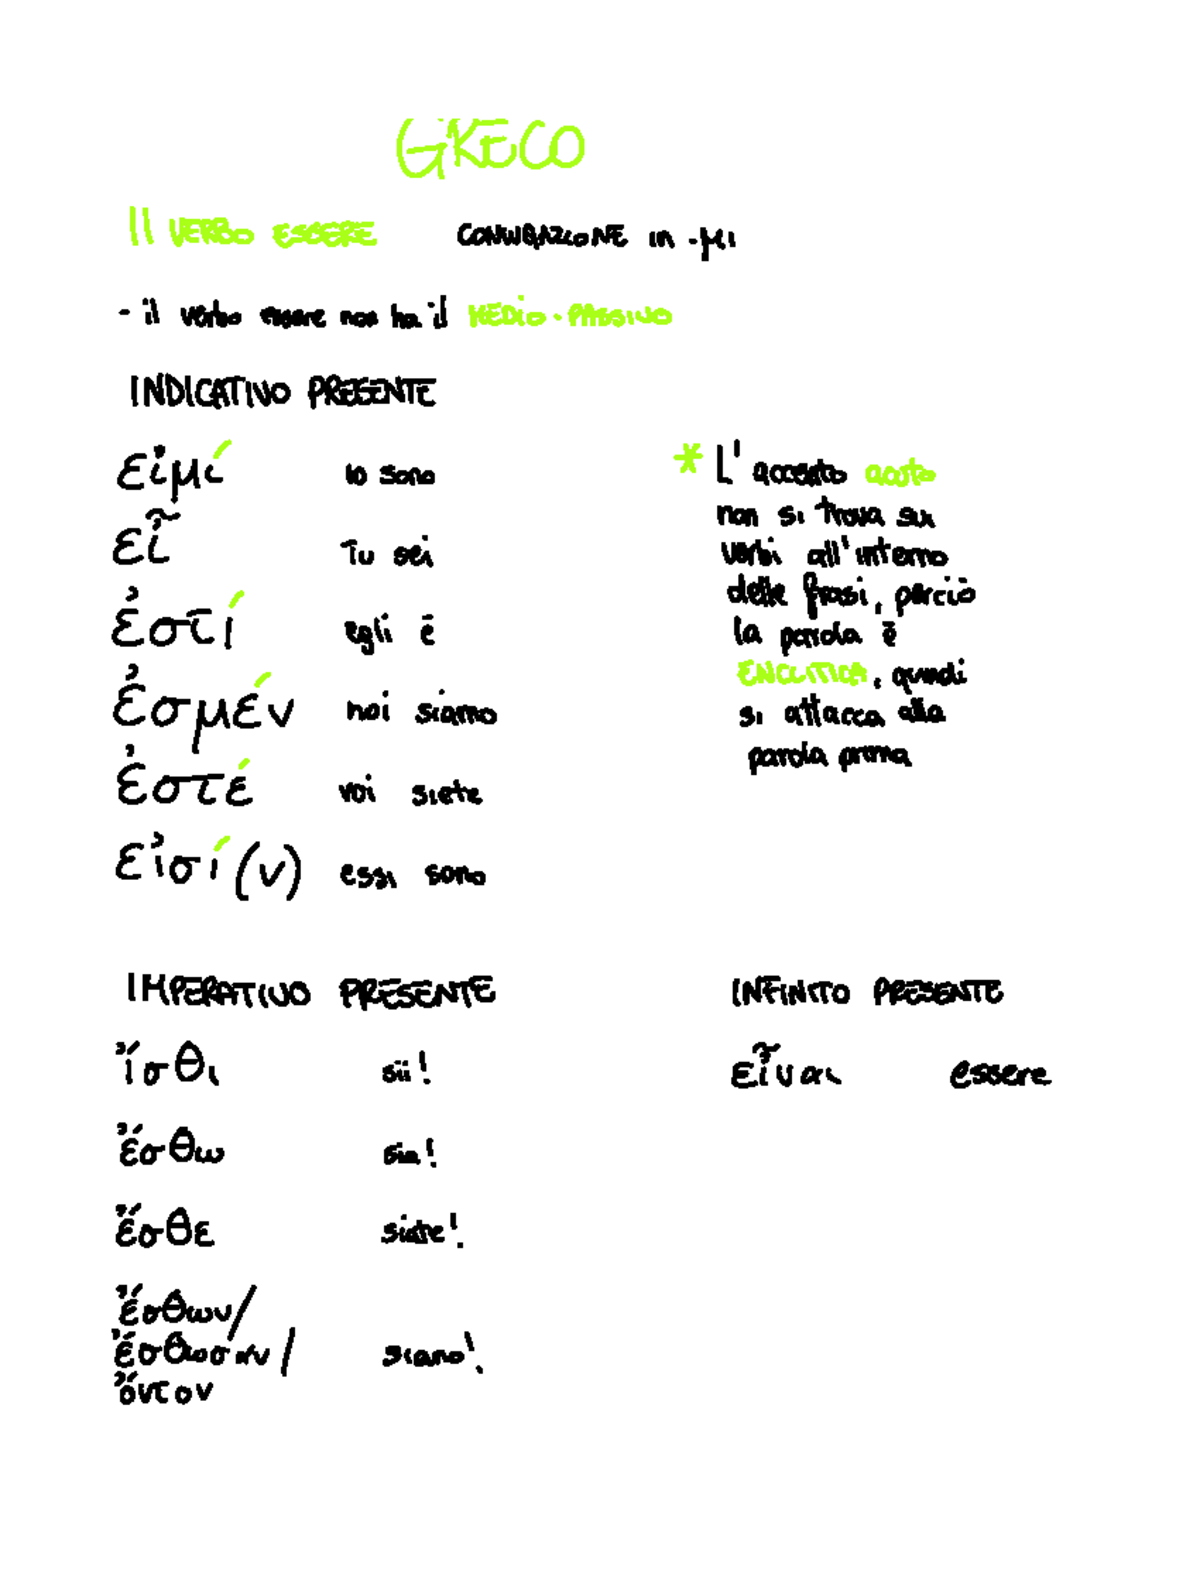 GRECO
Il VERBO ESSERE CONIUGAZIONE in -μι
- il verbo essere non ha il MEDIO-PASSIVO
INDICATIVO PRESENTE
εἰμί io sono
εἶ Tu sei
ἐστί egli è
ἐσμέν noi siamo
ἐστέ voi siete
εἰσί(ν) essi sono
* L'accento acuto
non si trova sui
verbi all'interno
delle frasi, perciò
la parola è
ENCLITICA, quindi
si attacca alla
parola prima
IMPERATIVO PRESENTE
ἴσθι sii!
ἔσθω sia!
ἔσθε siate!
ἔσθων/
ἔσθωσαν/ siano!
ὄντον
INFINITO PRESENTE
εἶναι essere